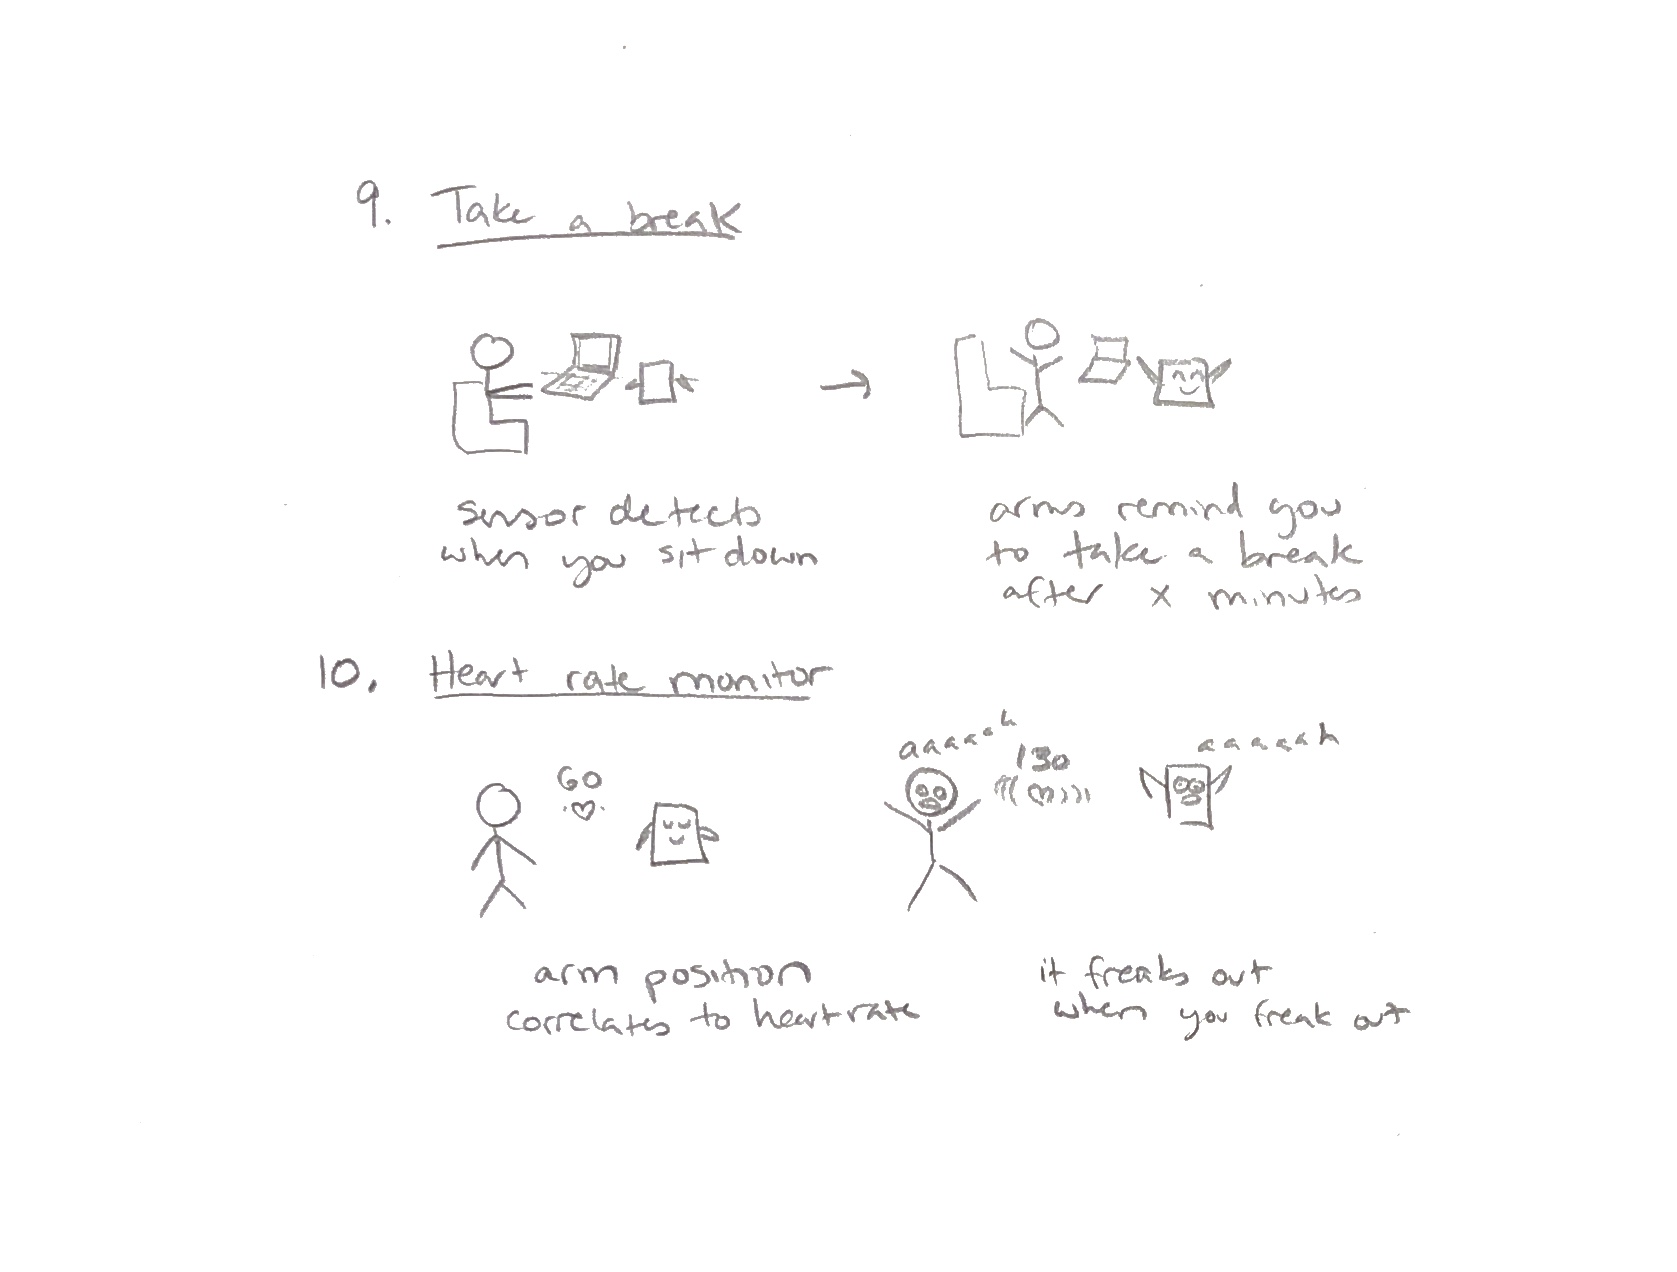 9. Take a break
sensor detects
when you sit down
arms remind you
to take a break
after x minutes
10. Heart rate monitor
60
aaaaah
130
aaaaah
arm position
correlates to heart rate
it freaks out
when you freak out